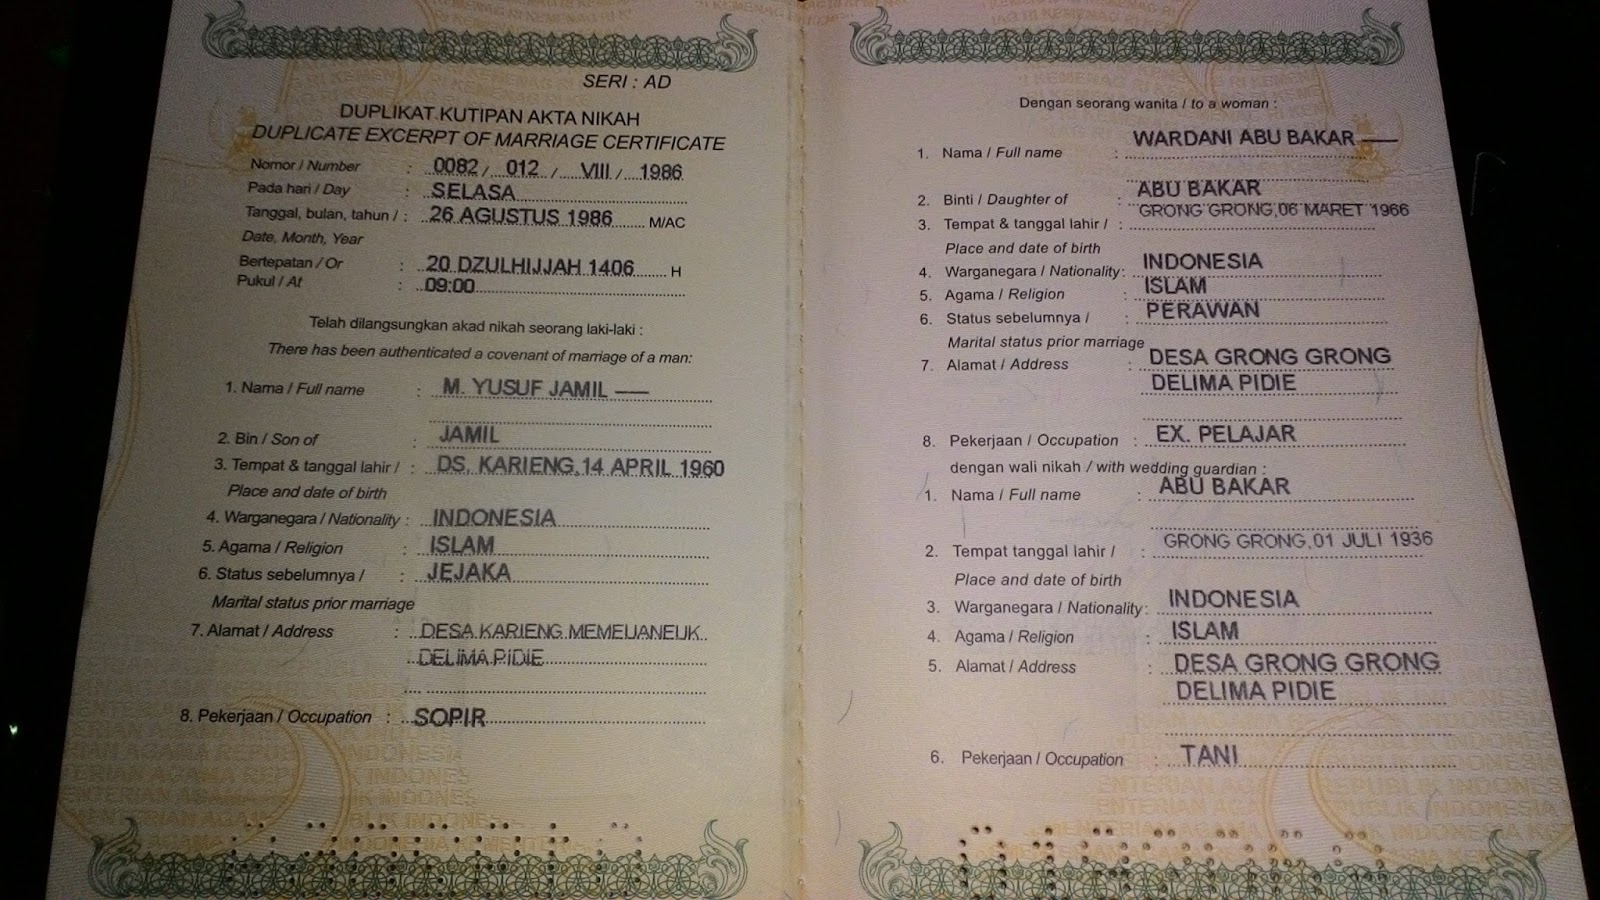 SERI : AD
DUPLIKAT KUTIPAN AKTA NIKAH
DUPLICATE EXCERPT OF MARRIAGE CERTIFICATE
Nomor / Number : 0082 / 012 / VIII / 1986
Pada hari / Day : SELASA
Tanggal, bulan, tahun / : 26 AGUSTUS 1986 M/AC
Date, Month, Year
Bertepatan / Or : 20 DZULHIJJAH 1406 H
Pukul / At : 09:00
Telah dilangsungkan akad nikah seorang laki-laki :
There has been authenticated a covenant of marriage of a man:
1. Nama / Full name : M. YUSUF JAMIL
2. Bin / Son of : JAMIL
3. Tempat & tanggal lahir / : DS. KARIENG,14 APRIL 1960
Place and date of birth
4. Warganegara / Nationality : INDONESIA
5. Agama / Religion : ISLAM
6. Status sebelumnya / : JEJAKA
Marital status prior marriage
7. Alamat / Address : DESA KARIENG MEMEUANEUK
DELIMA PIDIE
8. Pekerjaan / Occupation : SOPIR
Dengan seorang wanita / to a woman :
1. Nama / Full name : WARDANI ABU BAKAR
2. Binti / Daughter of : ABU BAKAR
3. Tempat & tanggal lahir / : GRONG GRONG,06 MARET 1966
Place and date of birth
4. Warganegara / Nationality : INDONESIA
5. Agama / Religion : ISLAM
6. Status sebelumnya / : PERAWAN
Marital status prior marriage
7. Alamat / Address : DESA GRONG GRONG
DELIMA PIDIE
8. Pekerjaan / Occupation : EX. PELAJAR
dengan wali nikah / with wedding guardian :
1. Nama / Full name : ABU BAKAR
2. Tempat tanggal lahir / : GRONG GRONG,01 JULI 1936
Place and date of birth
3. Warganegara / Nationality : INDONESIA
4. Agama / Religion : ISLAM
5. Alamat / Address : DESA GRONG GRONG
DELIMA PIDIE
6. Pekerjaan / Occupation : TANI